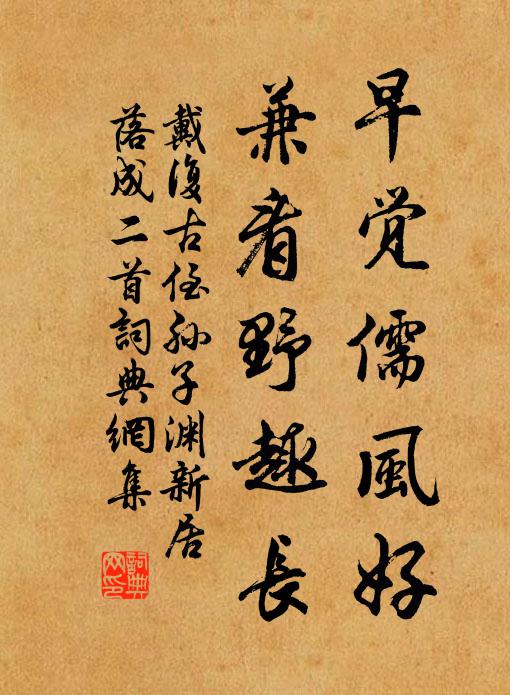 早觉儒風好
兼看野趣長
戴復古侄孫子淵新居
落成二首詞典網集
詞典
网印